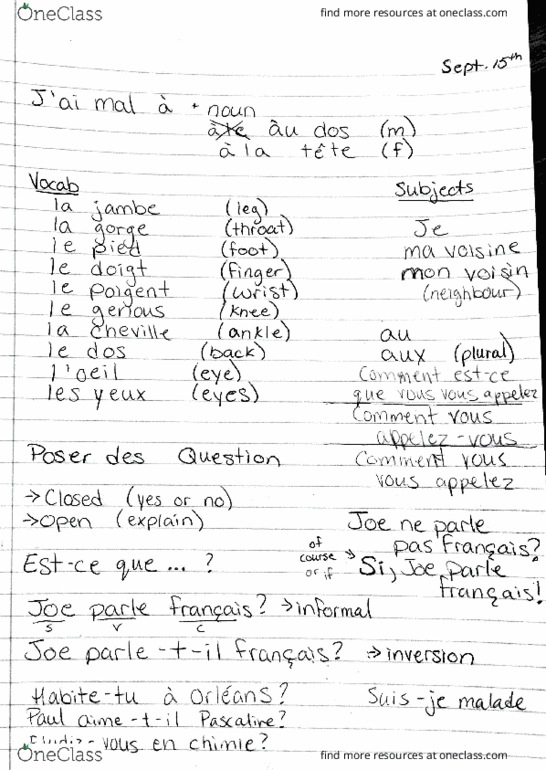 OneClass
find more resources at oneclass.com
Sept. 15th
J'ai mal à + noun
âu dos (m)
à la tête (f)
Vocab
la jambe (leg)
la gorge (throat)
le pied (foot)
le doigt (finger)
le poigent (wrist)
le genous (knee)
la cheville (ankle)
le dos (back)
l'oeil (eye)
les yeux (eyes)
Subjects
Je
ma voisine
mon voisin
(neighbour)
au
aux (plural)
Comment est-ce
que vous vous appelez
Comment vous
appelez-vous
Comment vous
vous appelez
Poser des Question
→ Closed (yes or no)
→ Open (explain)
Est-ce que ... ?
Joe ne parle
pas français?
of course or if → Si, Joe parle
français!
Joe parle français? → informal
S V C
Joe parle-t-il français? → inversion
Habite-tu à Orléans?
Suis-je malade
Paul aime-t-il Pascaline?
vous en chimie?
OneClass
find more resources at oneclass.com